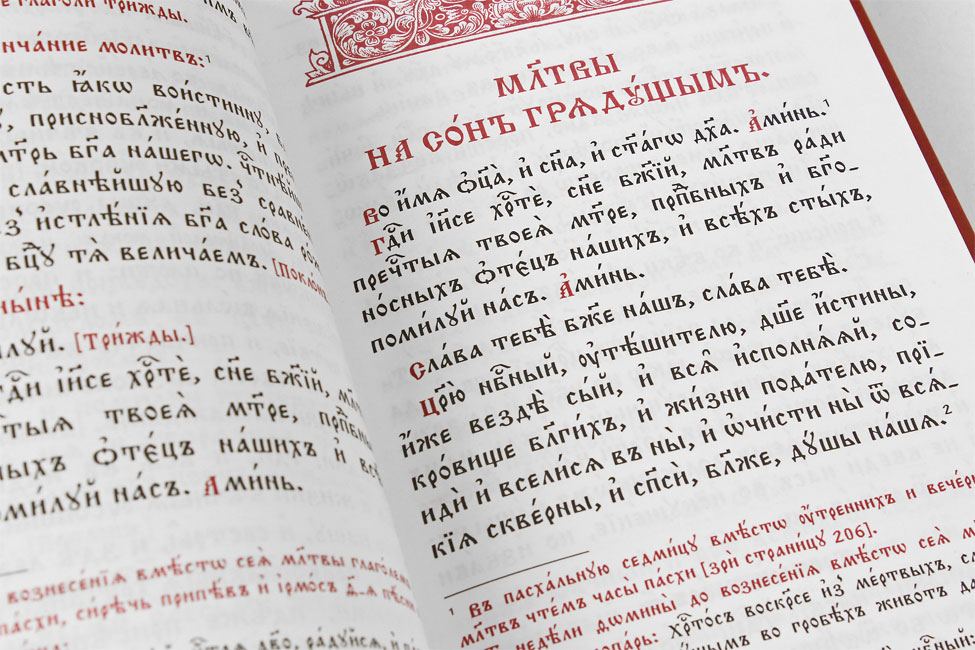 е глаго́ли три́жды.
нча́ние моли́твъ:¹
є́сть ꙗ҆́кѡ вои́стинну
присноблаже́нную, и҆
мт҃рь бг҃а на́шегѡ. чⷭ҇тнѣ́йшую
сла́внѣйшую без̾ сравне́нїѧ
без̾ и҆стлѣ́нїѧ бг҃а сло́ва
бцⷣу тѧ̀ велича́емъ. [Покло́нъ
ны́нѣ:
ми́луй. [Три́жды.]
гдⷭ҇и і҆и҃се хрⷭ҇те́, сн҃е бж҃їй,
твоеѧ̀ мт҃ре, прпⷣбныхъ
ѻ҆те́цъ на́шихъ и҆
поми́луй на́съ. А҆ми́нь.
вознесе́нїѧ вмѣ́стѡ сеѧ̀ мл҃твы
па́схи, си́рѣчь припѣ́въ и҆ і҆рмо́съ
ра́дуйсѧ, и҆
МЛ҃ТВЫ
НА СО́НЪ ГРѦДУ́ЩЫМЪ.
Во и҆́мѧ ѻ҆ц҃а̀, и҆ сн҃а, и҆ ст҃а́гѡ дх҃а. А҆ми́нь.¹
Гдⷭ҇и і҆и҃се хрⷭ҇те́, сн҃е бж҃їй, мл҃твъ ра́ди
пречⷭ҇тыѧ твоеѧ̀ мт҃ре, прпⷣбныхъ и҆ бг҃о-
но́сныхъ ѻ҆те́цъ на́шихъ, и҆ всѣ́хъ ст҃ы́хъ,
поми́луй на́съ. А҆ми́нь.
Сла́ва тебѣ̀ бж҃е на́шъ, сла́ва тебѣ̀.
Цр҃ю̀ нбⷭ҇ный, ᲂу҆тѣ́шителю, дш҃е и҆́стины,
и҆́же вездѣ̀ сы́й, и҆ всѧ̑ и҆сполнѧ́ѧй, со-
кро́вище бл҃ги́хъ, и҆ жи́зни пода́телю, прїи-
идѝ и҆ всели́сѧ въ ны̀, и҆ ѡ҆чи́сти ны̀ ѿ всѧ́-
кїѧ скве́рны, и҆ сп҃сѝ, бл҃же, дꙋ́шы на́шѧ.²
¹ Въ пасха́льную седми́цу вмѣ́стѡ ᲂу҆́треннихъ и҆ вече́рнихъ
мл҃твъ чте́мъ часы̀ па́схи [зрѝ страни́цу 206].
недѣ́ли ѳомины̀ до вознесе́нїѧ вмѣ́стѡ сеѧ̀
тропа́рь: хрⷭ҇то́съ воскр҃се и҆з̾ ме́ртвыхъ,
сꙋ́щымъ во гробѣ́хъ живо́тъ